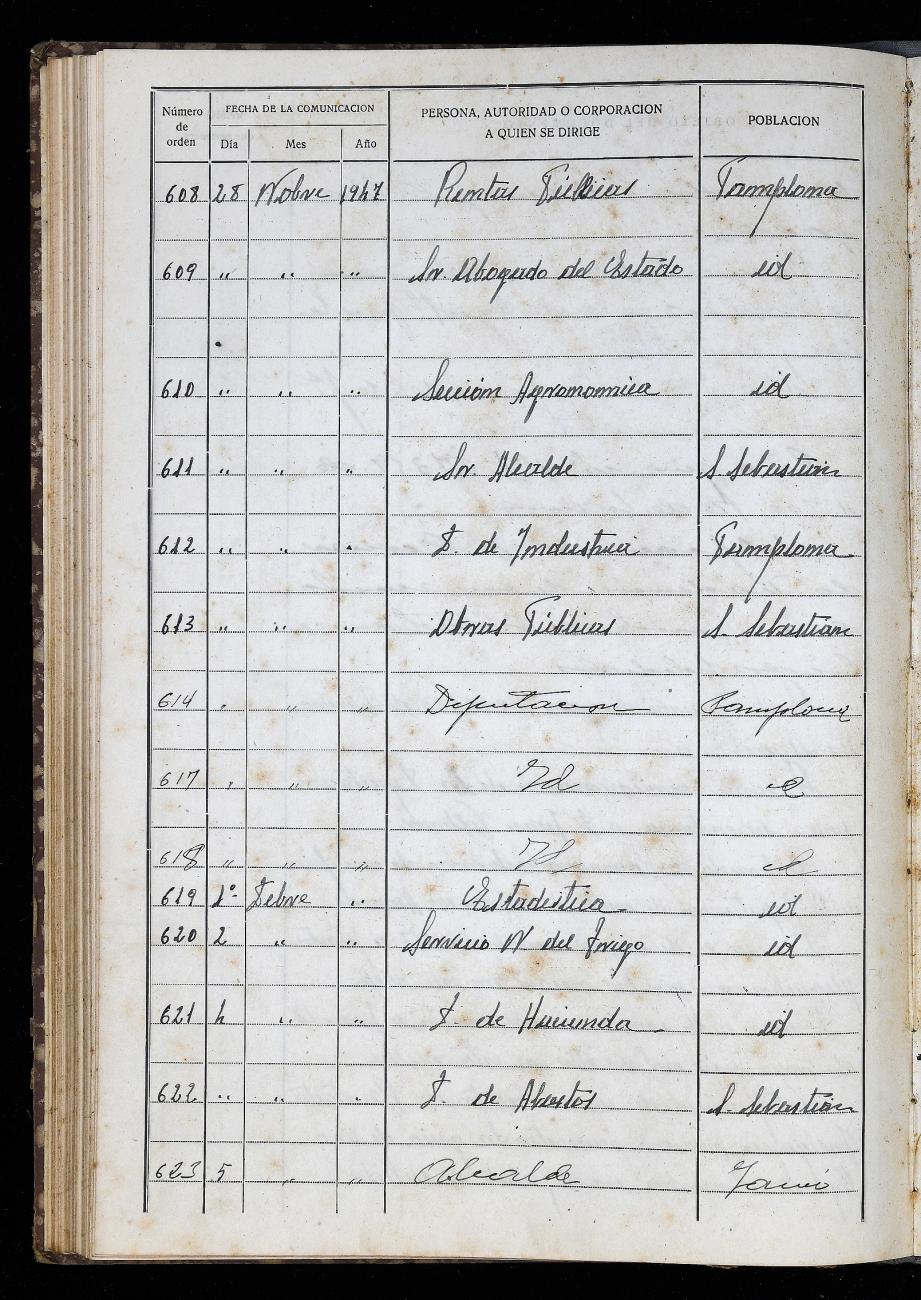 Número de orden | FECHA DE LA COMUNICACION | PERSONA, AUTORIDAD O CORPORACION A QUIEN SE DIRIGE | POBLACION
Día | Mes | Año
608 28 Nobre 1947 Rentas Públicas Pamplona
609 " " " Sr. Abogado del Estado id
610 " " " Sección Agronomica id
611 " " " Sr. Alcalde S. Sebastián
612 " " " D. de Industria Pamplona
613 " " " Obras Públicas S. Sebastián
614 " " " Diputacion Pamplona
617 " " " Id id
618 " " " Id id
619 1º Debre " Estadistica id
620 2 " " Servicio N. del Trigo id
621 4 " " D. de Hacienda id
622 " " " D. de Abastos S. Sebastián
623 5 " " Alcalde